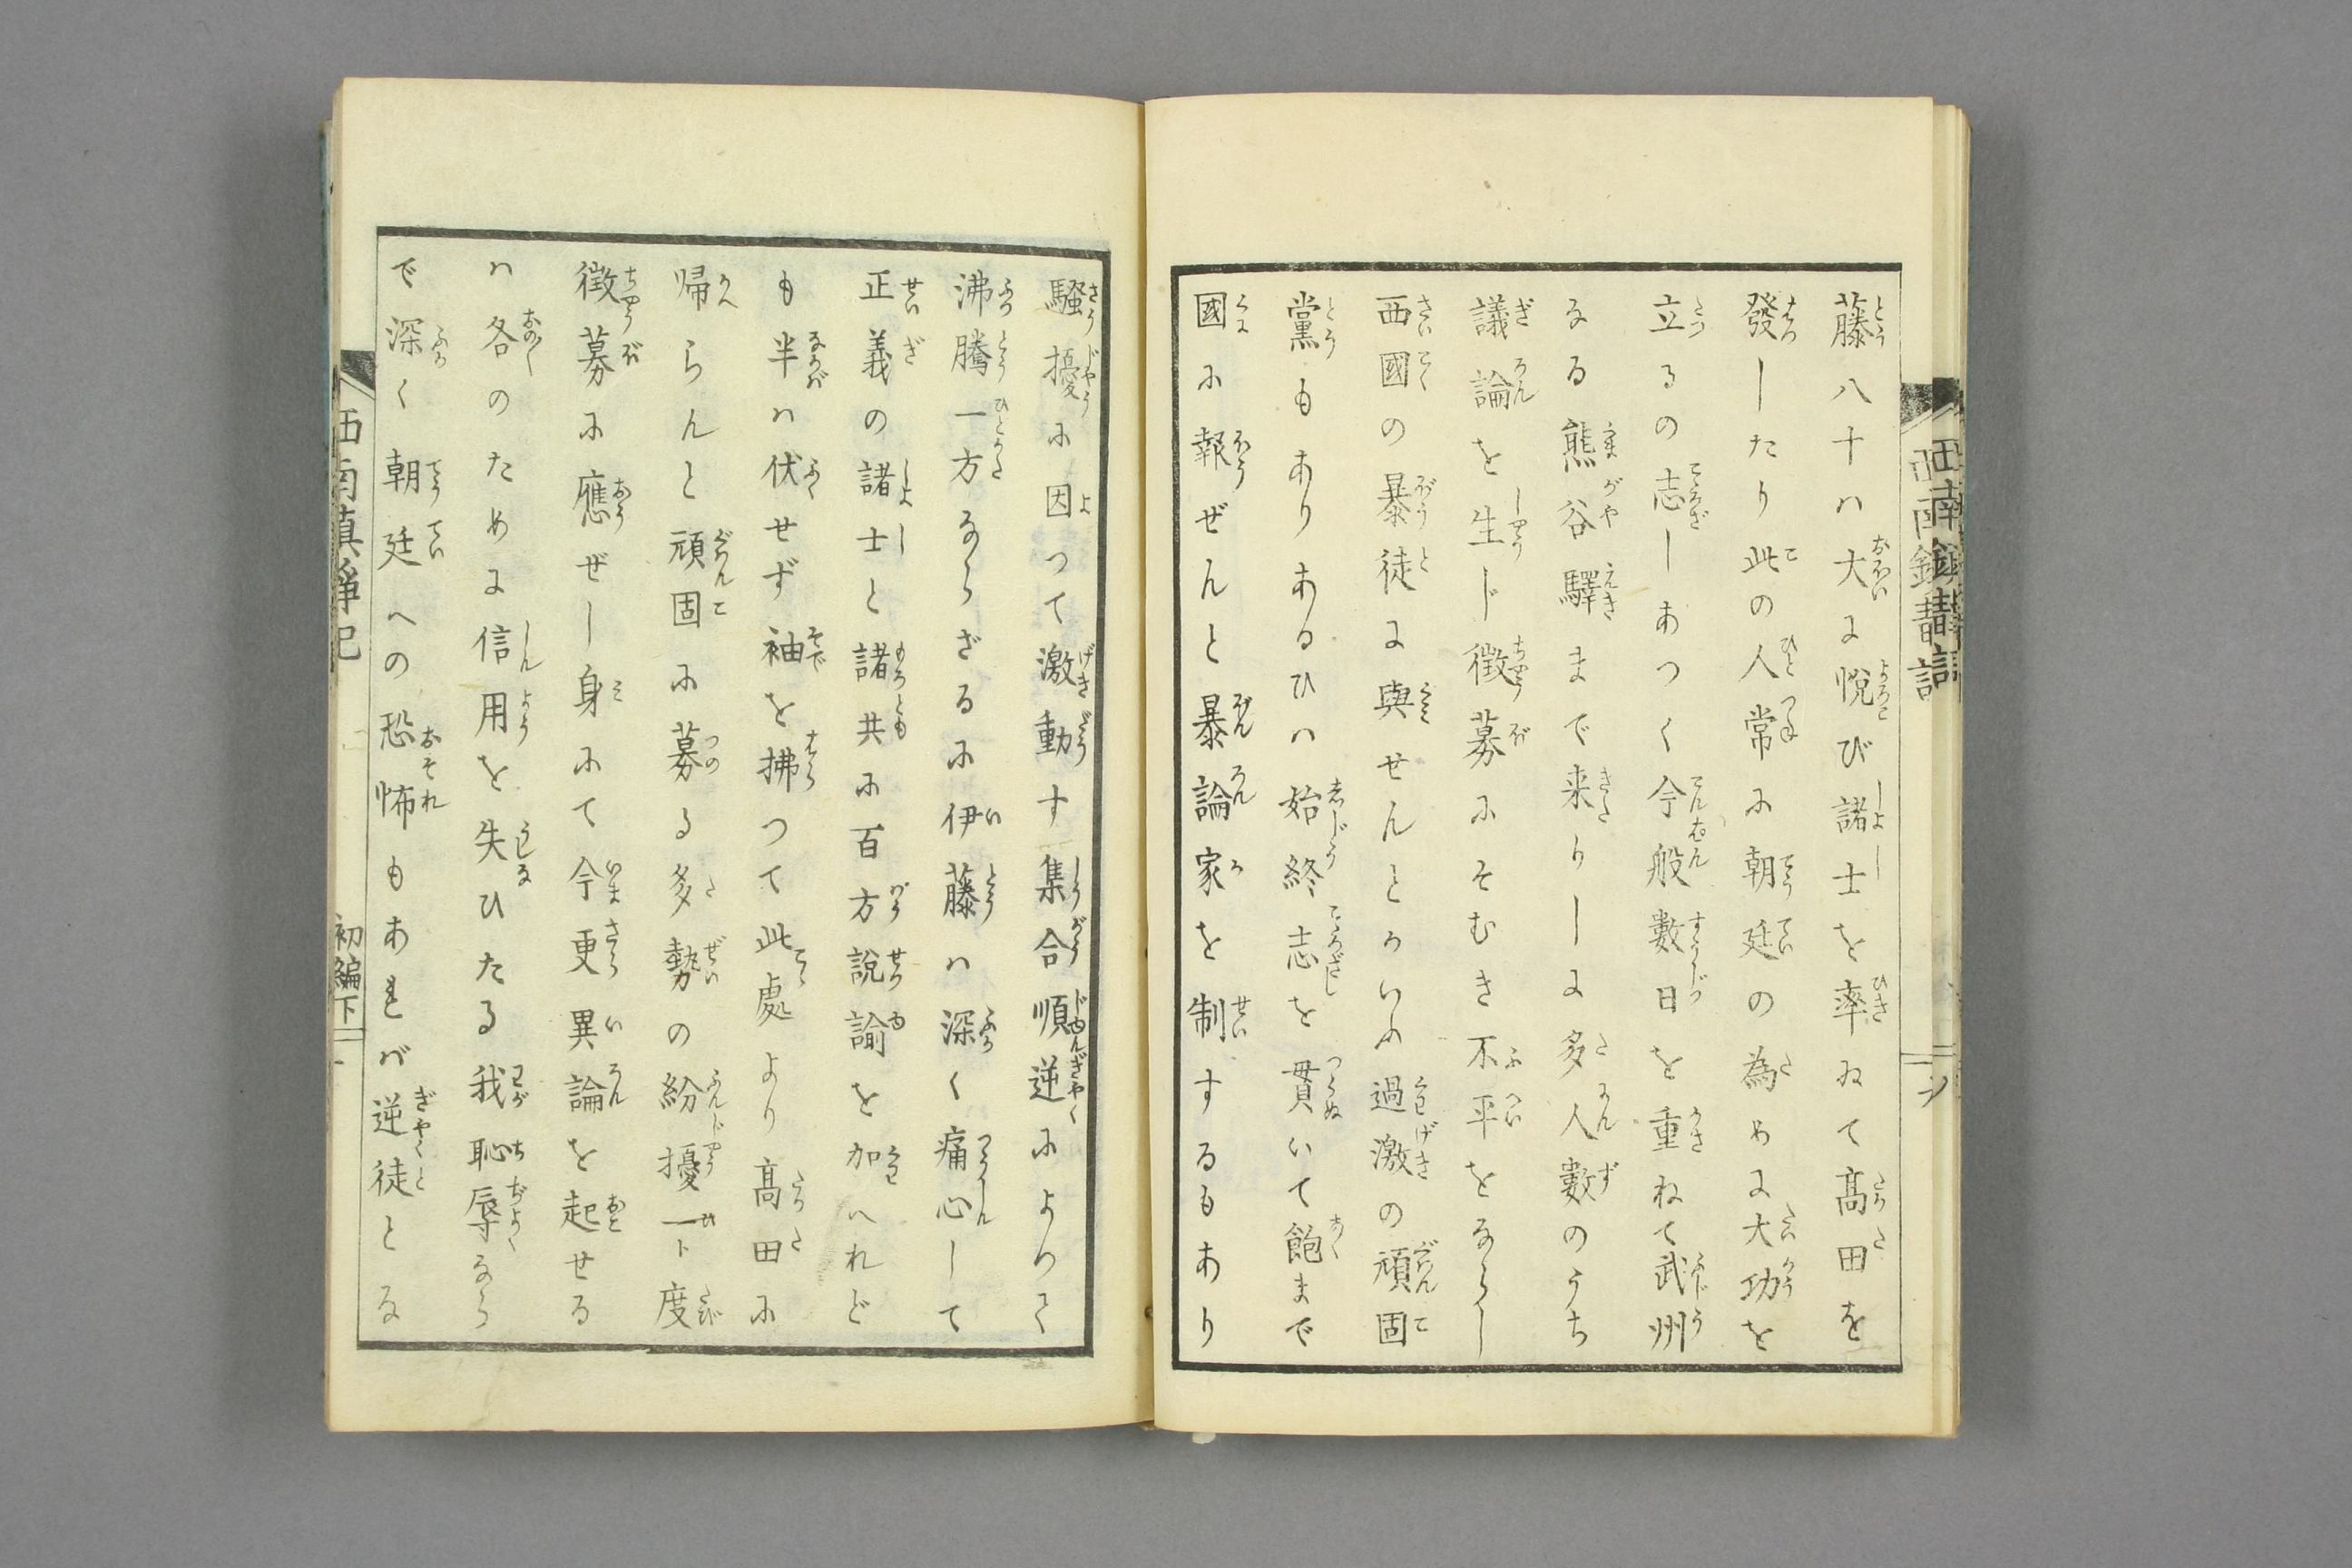 藤八十ハ大に悦び諸士を率ゐて髙田を
發したり此の人常に朝廷の為めに大功を
立るの志しあつく今般數日を重ねて武州
なる熊谷驛まで来りしに多人數のうち
議論を生じ徴募にそむき不平をならし
西國の暴徒に與せんとかいふ過激の頑固
黨もありあるひハ始終志を貫いて飽まで
國に報ぜんと暴論家を制するもあり
騒擾に因つて激動す集合順逆によりて
沸騰一方ならざるに伊藤ハ深く痛心して
正義の諸士と諸共に百方説諭を加へれど
も半ハ伏せず袖を拂つて此處より髙田に
帰らんと頑固に募る多勢の紛擾一ト度
徴募に應ぜし身にて今更異論を起せる
ハ各のために信用を失ひたる我恥辱なら
で深く朝廷への恐怖もあれバ逆徒とな
初編下